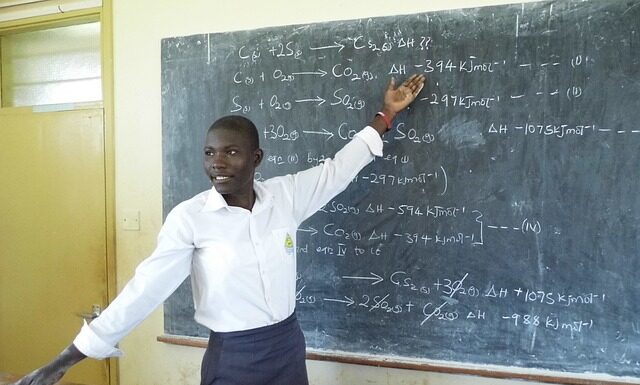 C(s) + 2S(s) → CS2(s) ΔH ??
C(s) + O2(g) → CO2(g), ΔH -394 kJmol-1 --- (i)
S(s) + O2(g) → SO2(g) -297 kJmol-1 --- (ii)
+3O2(g) → CO SO2(g) ΔH -1075 kJmol-1 ---
eqn (ii) by eq
H -297 kJmol-1)
2SO2(g) ΔH -594 kJmol-1
→ CO2(g) ΔH -394 kJmol-1 --- (iv)
eqn iv to it
→ CS2(s) + 3O2(g) ΔH +1075 kJmol-1
→ 2SO2(g) + CO2(g) ΔH -988 kJmol-1